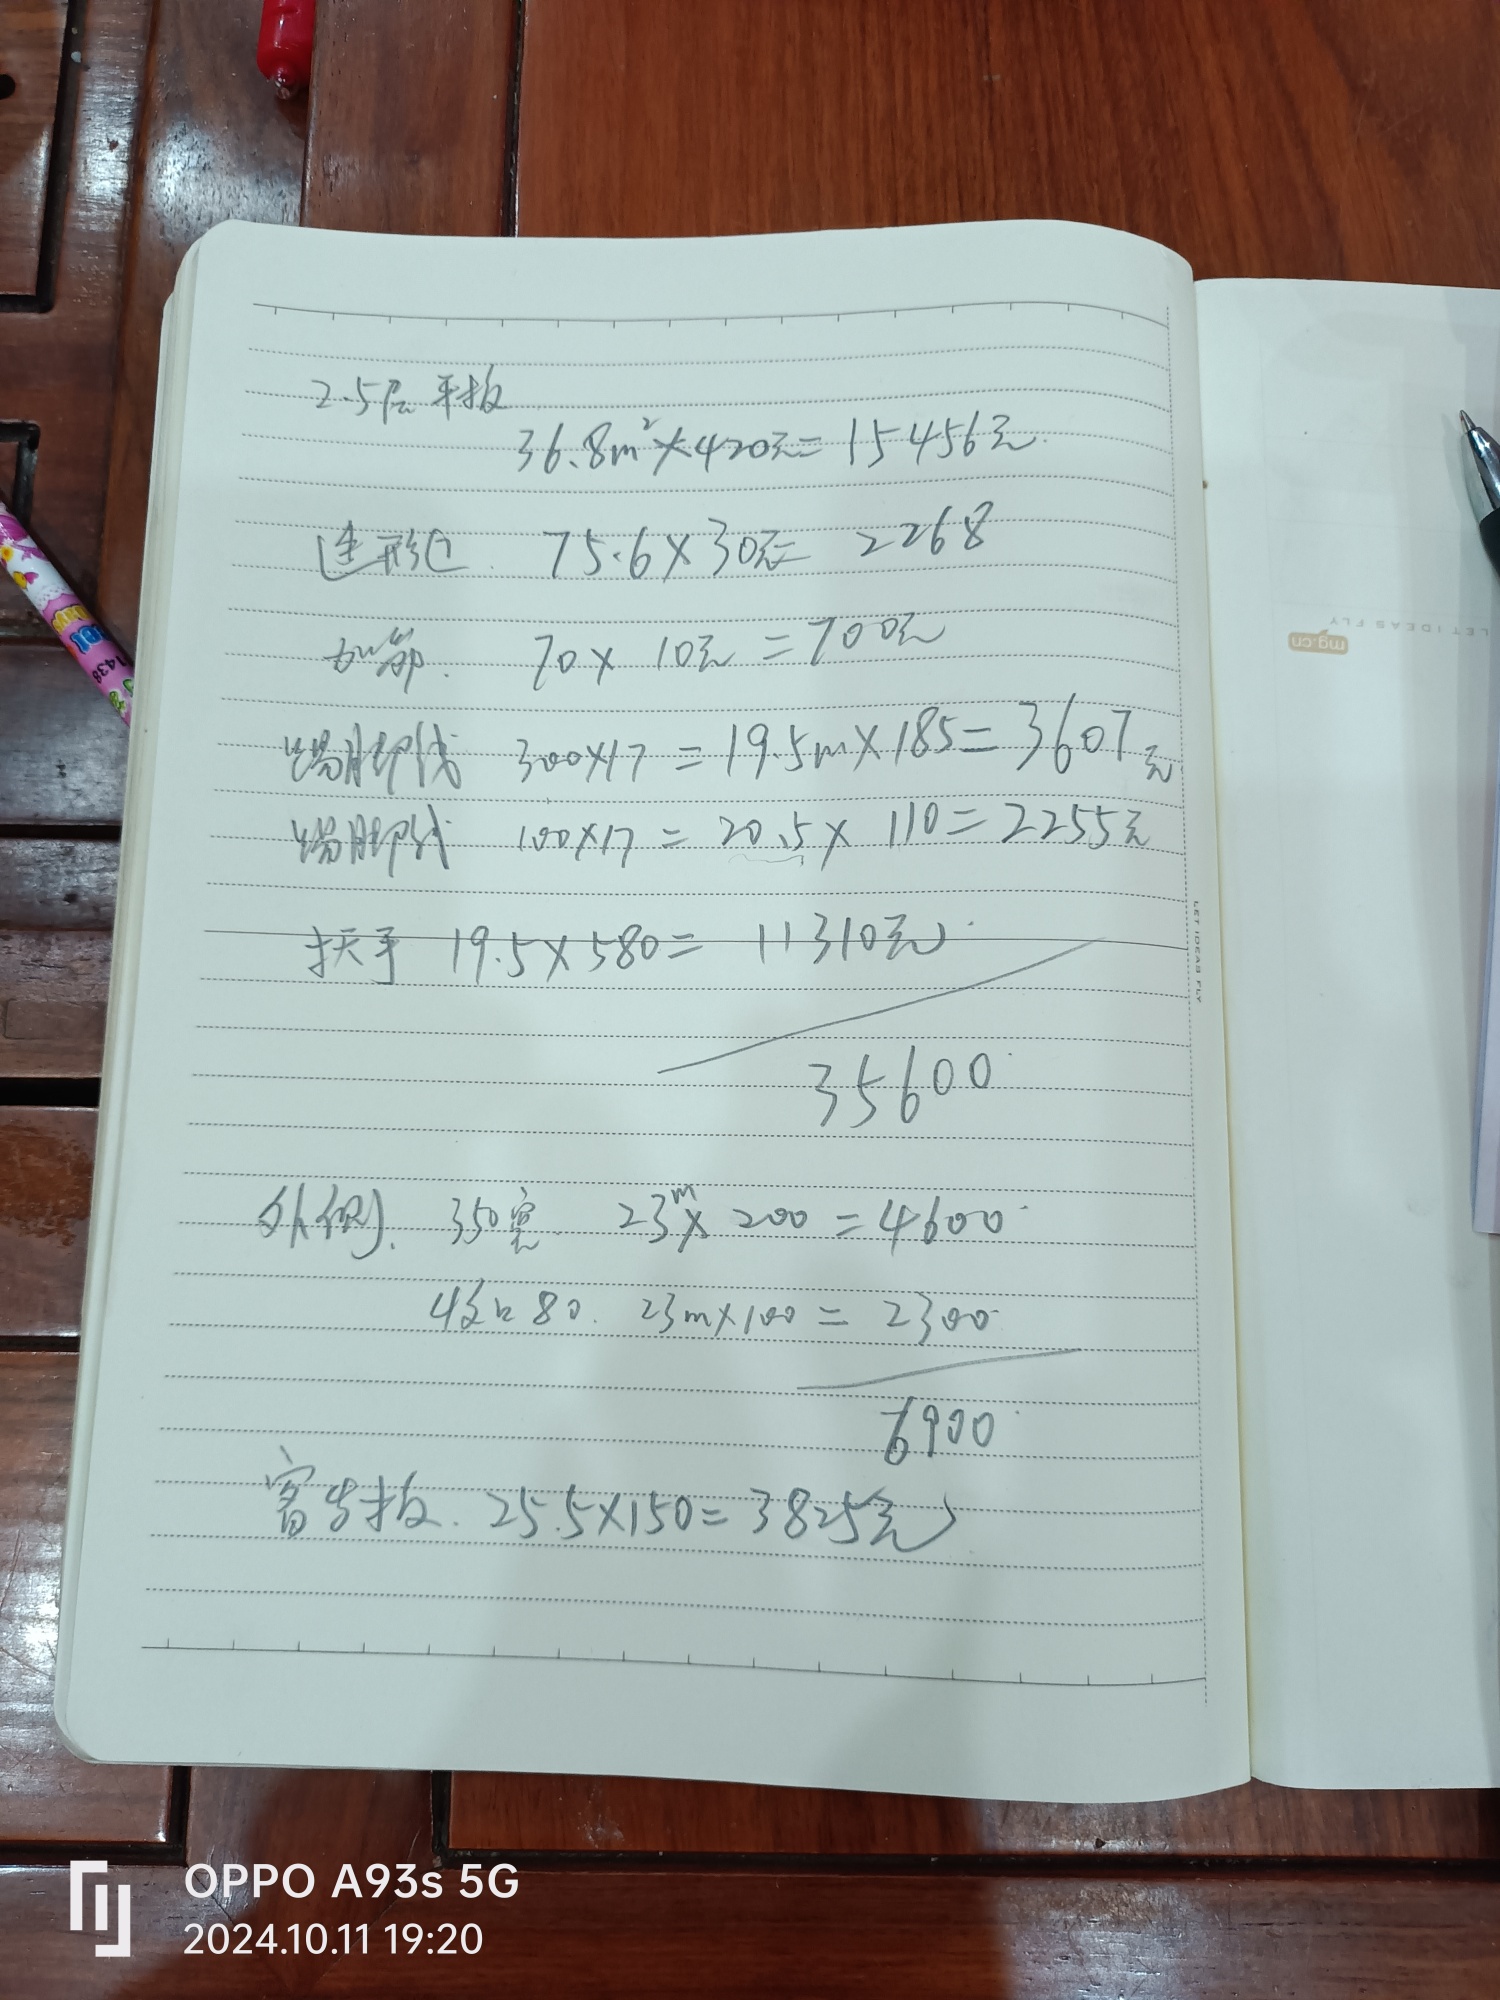 2.5层平板
36.8m²×420元=15456元
造形边 75.6×30元= 2268
加筋. 70× 10元 =700元
踢脚线 300×17 = 19.5m×185=3607元
踢脚线 100×17 = 20.5× 110=2255元
扶手 19.5×580= 11310元
35600
外侧. 350宽 23m× 200 =4600
收口80. 23m×100 = 2300
6900
窗台板. 25.5×150=3825元
LET IDEAS FLY
LET IDEAS FLY
mg.cn
1438
OPPO A93s 5G
2024.10.11 19:20